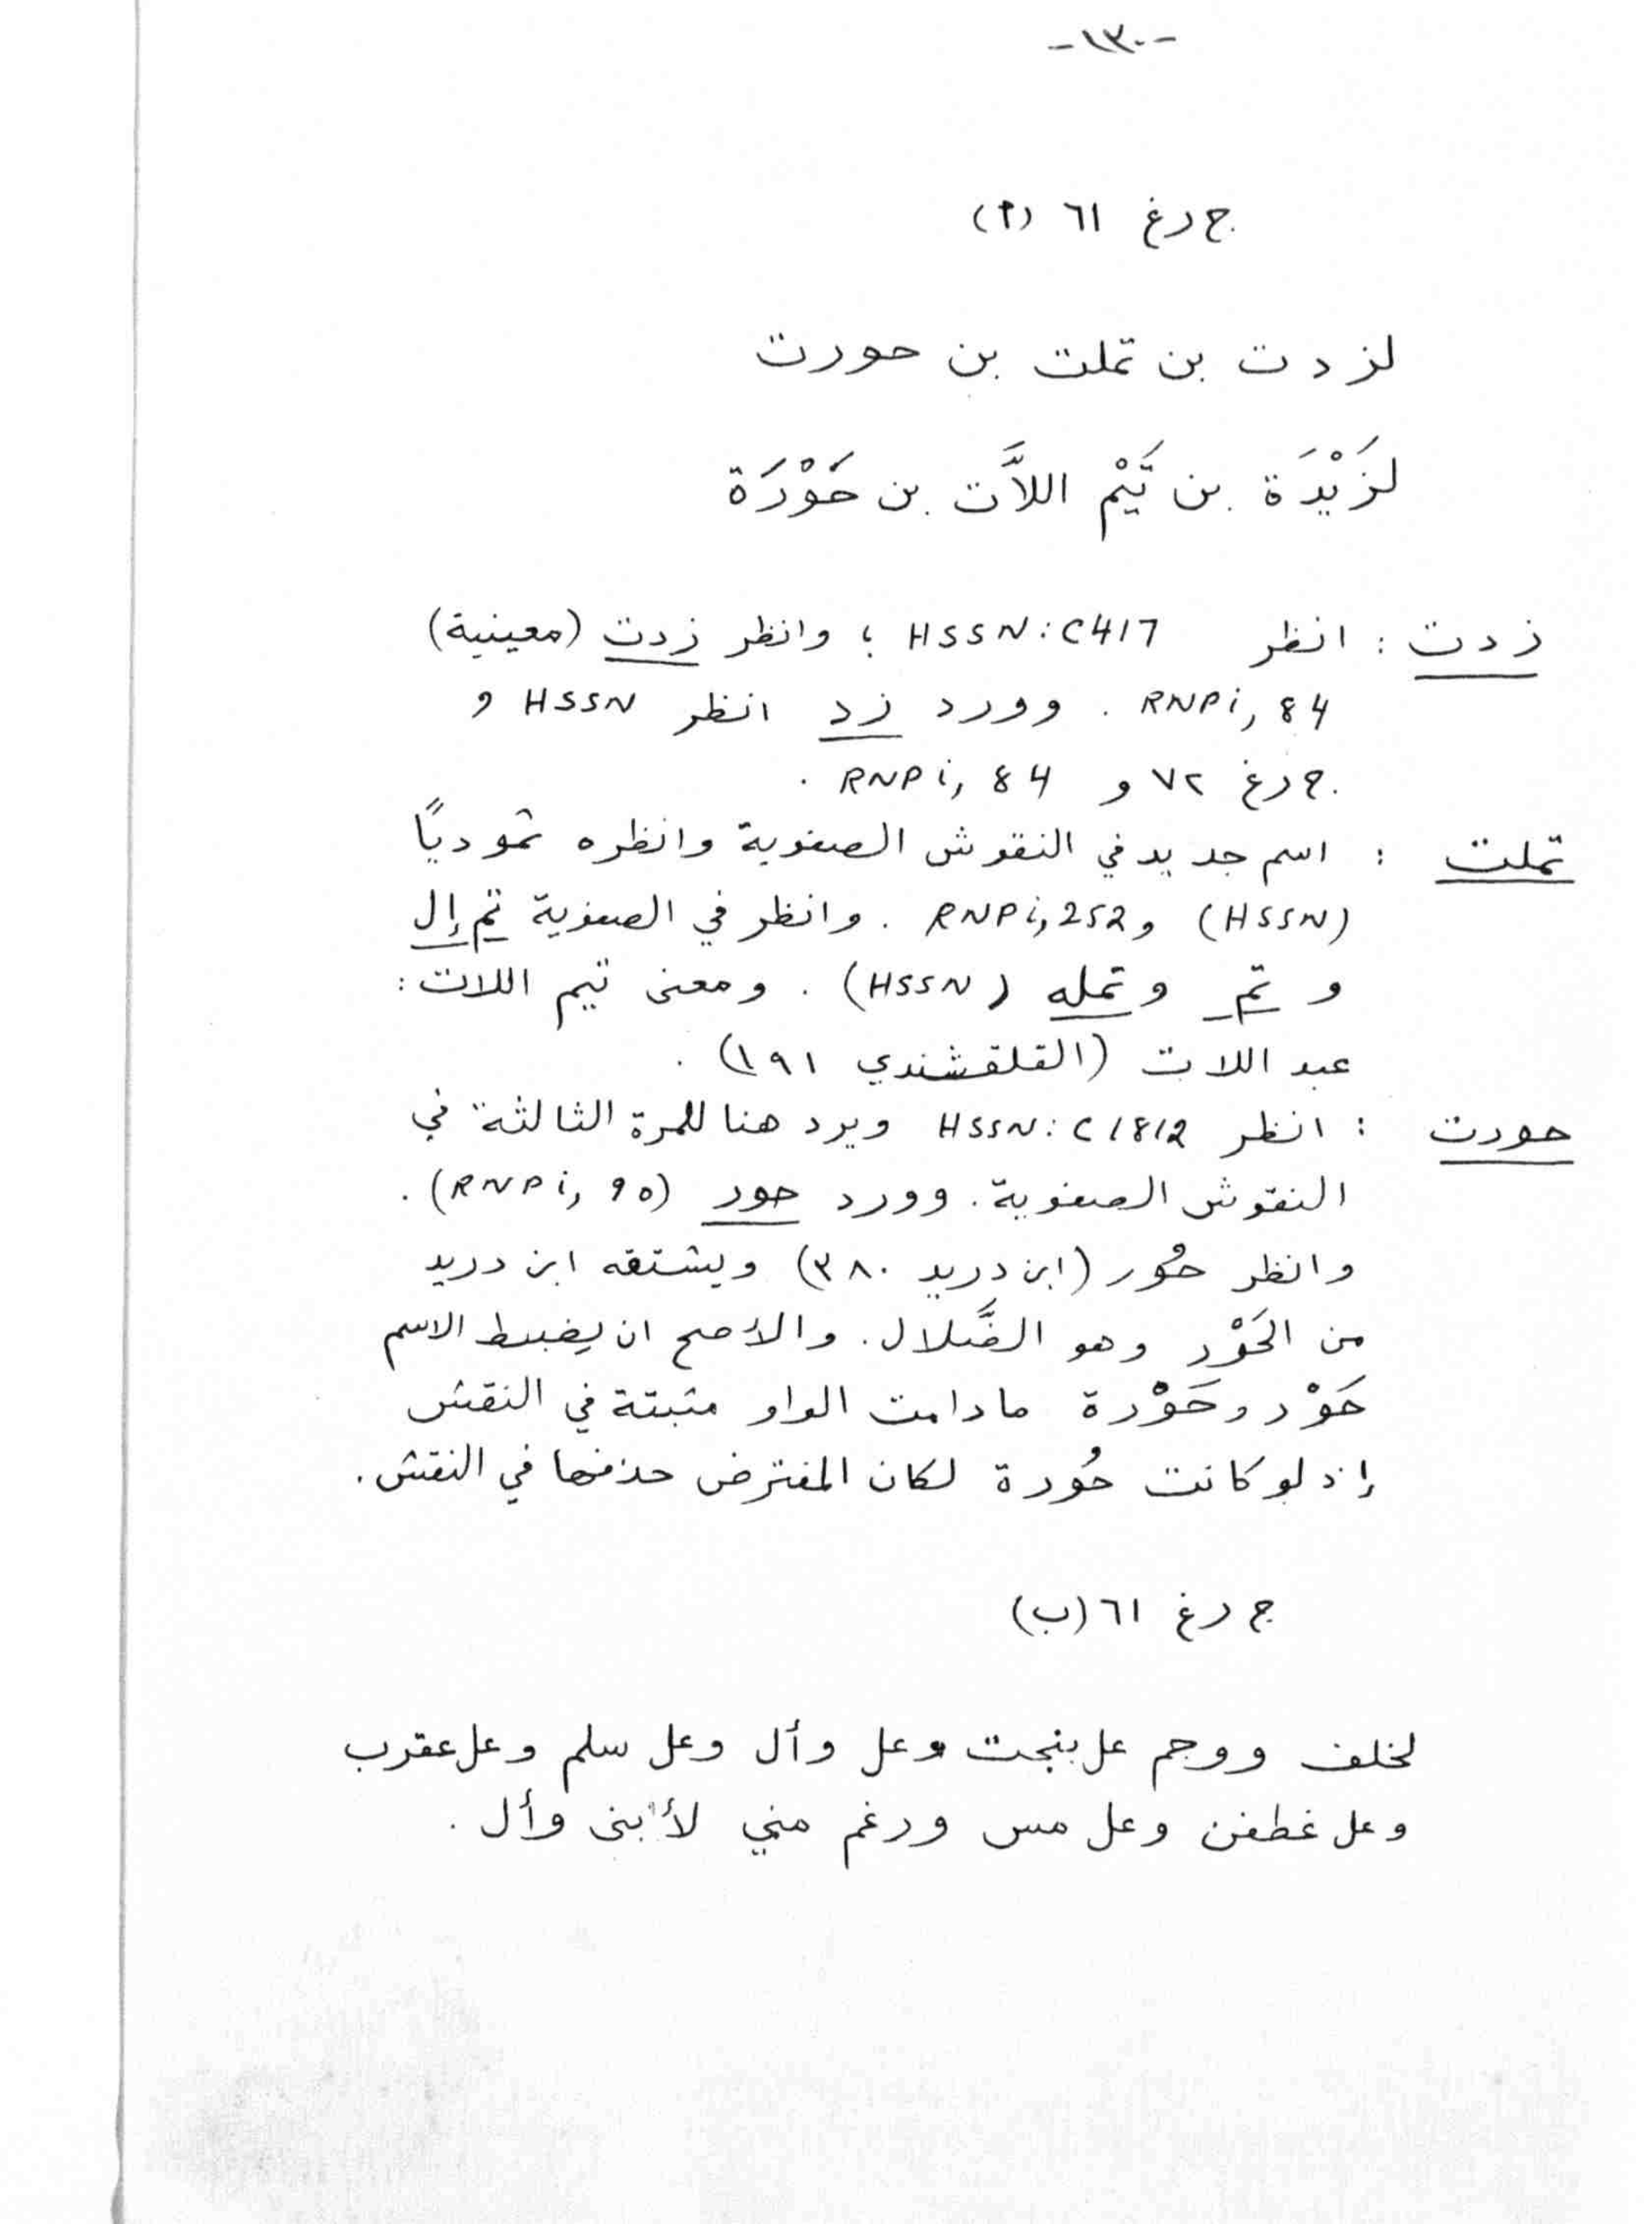 -١٣٠-
ج رغ ٦١ (٢)
لزدت بن تملت بن حورت
لزَيْدَة بن تَيْم اللاَّت بن حَوْرَة
زدت : انظر HSSN: C417 ؛ وانظر زدت (معينية)
RNPi, 84 . وورد زد انظر HSSN و
ج رغ ٧٢ و RNPi, 84 .
تملت : اسم جديد في النقوش الصفوية وانظره ثموديًا
(HSSN) و RNPi, 252 . وانظر في الصفوية تم إل
و تم و تمله (HSSN) . ومعنى تيم اللات :
عبد اللات (القلقشندي ١٩١) .
حورت : انظر HSSN: C1812 ويرد هنا للمرة الثالثة في
النقوش الصفوية . وورد حور (RNPi, 90) .
وانظر حُور (ابن دريد ٣٨٠) ويشتقه ابن دريد
من الحَوْر وهو الضَّلال . والأصح ان يضبط الاسم
حَوْر وحَوْرة مادامت الواو مثبتة في النقش
إذ لو كانت حُورة لكان المفترض حذفها في النقش .
ج رغ ٦١ (ب)
لخلف ووجم عل بنجت وعل وأل وعل سلم وعل عقرب
وعل غطفن وعل مس ورغم مني لأبنى وأل .